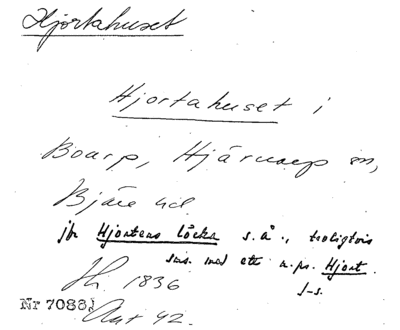 Hjortahuset
Hjortahuset i
Boarp, Hjärnarp sn,
Bjäre hd
jfr Hjortens löcka s. å., troligtvis
sms. med ett n.pr. Hjort.
J-s.
1836
Nr 7088
42.